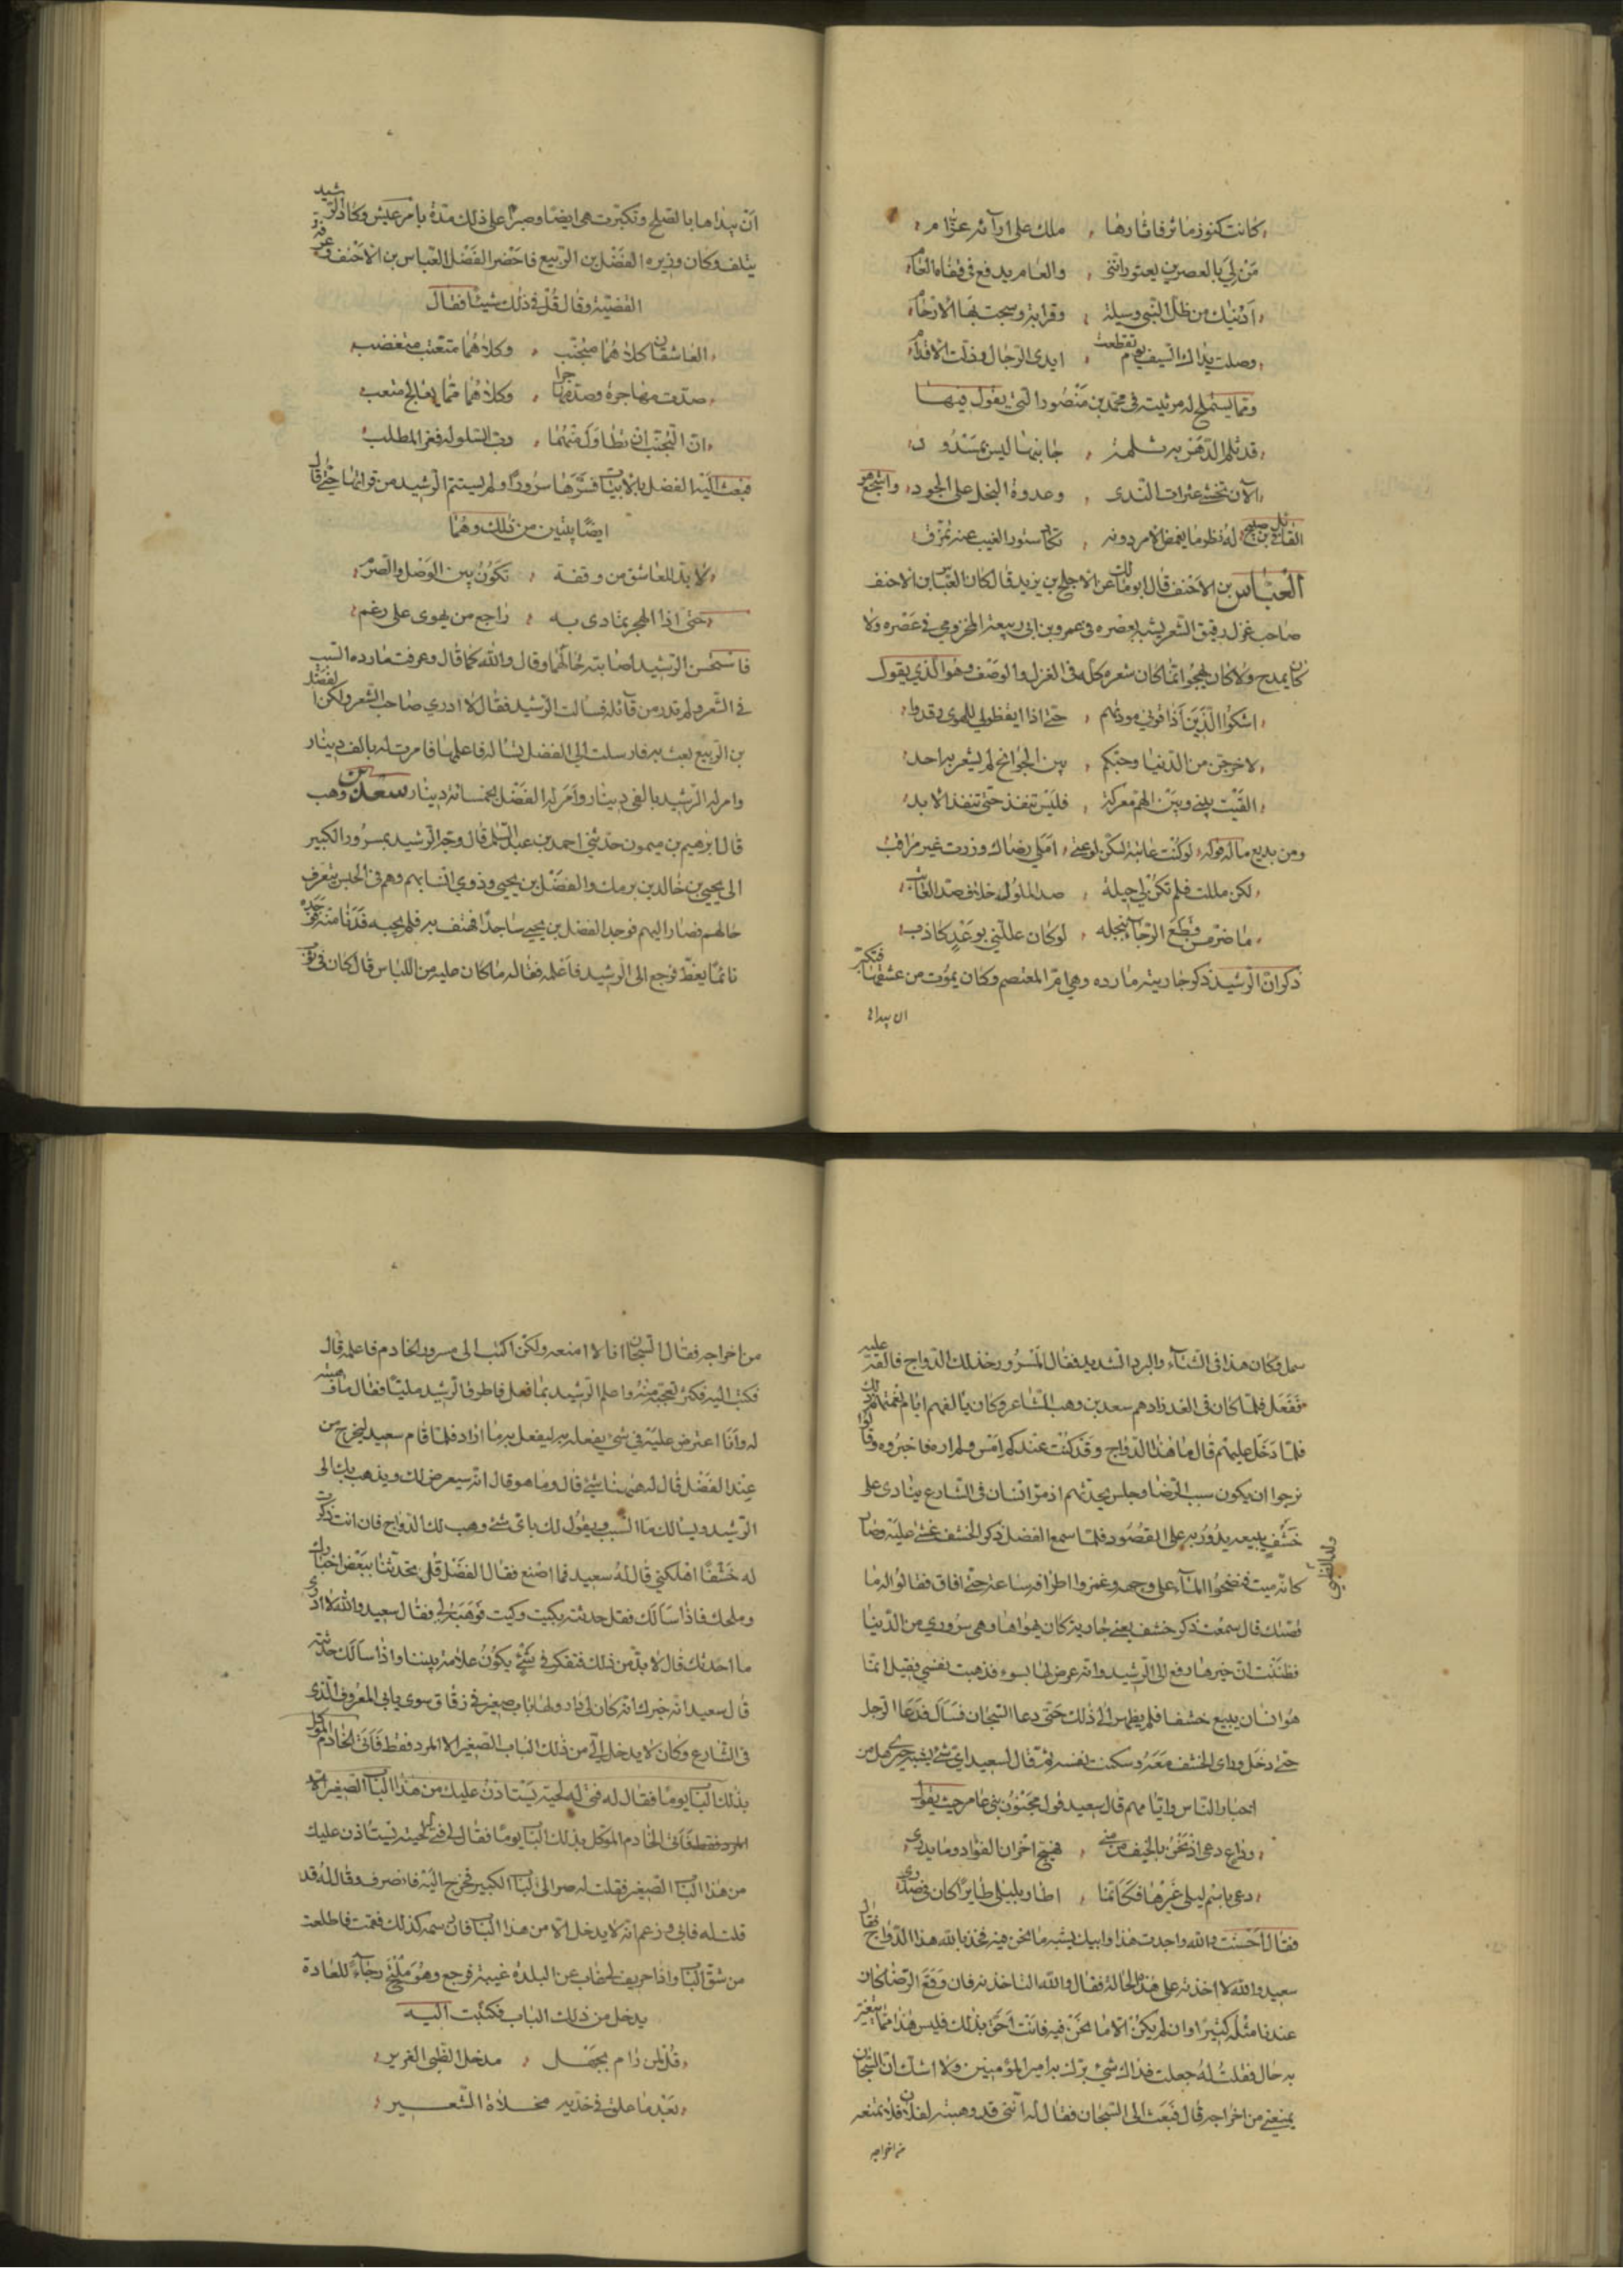 كانت كنوز مآثر فاثارها ، ملك على اوآئه عزام
مَنْ لي بالعصرين يعتورانني ، والعام يدفع في قفاه العام
ادنتك من ظل النبي وسيلة ، وقرابة وسجت بها الارحام
وصلت يداك السيف يوم تقطعت ، ايدى الرجال وزلت الاقدام
ومما يستملح له مرثيته فى محمد بن منصور التي يقول فيها
قد ثلم الدهر به ثلمة ، جانبها ليس بمسدود
الآن تخشى عثرات الندى ، وعدوة البخل على الجود واشجع هو
القائل له نظر ما يغمض الامر دونه ، تكاد ستور الغيب عنه تمزق
العباس بن الاحنف قال ابو مالك عن الاجلح بن يزيد قال كان العباس بن الاحنف
صاحب غزل رقيق الشعر يشبه بعصره فى عمرو بن ابى ربيعة المخزومي في عصره ولا
كان يمدح ولا كان يهجوا انما كان شعره كله فى الغزل والوصف وهو الذي يقول
اشكوا الذين اذاقوني مودتهم ، حتى اذا ايقظوني للهوى رقدوا
لاخرجن من الدنيا وحبكم ، بين الجوانح لم يشعر به احد
القيت بيني وبين الهم معركة ، فليس تنفذ حتى تنفذ الابد
ومن بديع ماله قوله لو كنت عاتبة لسكن لوعتي ، املي رضاك وزرت غير مراقب
لكن مللت فلم تكن لي حيلة ، صد الملول خلاف صد العاتب
ما ضر من قطع الرجاء ببخله ، لو كان عللني بوعد كاذب
ذكر ان الرشيد ذكر جاريته مارده وهي ام المعتصم وكان يموت من عشقها فتكبر
ان يبداها
ان يبداها بالصلح وتكبرت هى ايضا وصبرا على ذلك مدة بامر عيش وكاد الرشيد
يتلف وكان وزيره الفضل بن الربيع فاحضر الفضل العباس بن الاحنف وعرفه
القضية وقال قل في ذلك شيئا فقال
العاشقان كلاهما متجنب ، وكلاهما متعتب متغضب
صدت مهاجرة وصد مهاجرا ، وكلاهما مما يعالج متعب
ان التجنب ان تطاول منهما ، دب السلو له فعز المطلب
فبعث اليه الفضل بالابيات فسر بها سرورا ولم يستتم الرشيد من قرائتها حتى قال
ايضا بيتين من ذلك وهما
لا بد للعاشق من وقفة ، تكون بين الوصل والصرم
حتى اذا الهجر تمادى به ، راجع من يهوى على رغم
فاستحسن الرشيد اصابته حالهما وقال والله كما قال وعرفت مارده السبب
في الشعر ولم تدر من قائله فسالت الرشيد فقال لا ادري صاحب الشعر ولكن الفضل
بن الربيع بعث به فارسلت الى الفضل تساله فاعلمها فامرت له بالف دينار
وامر له الرشيد بالفي دينار وامر له الفضل بخمسمائة دينار سعيد بن وهب
قال ابرهيم بن ميمون حدثني احمد بن عبد السلم قال وجه الرشيد بمسرور الكبير
الى يحيى بن خالد بن برمك والفضل بن يحيى وذوي انسابهم وهم فى الحبس يتعرف
حالهم فصار اليهم فوجد الفضل بن يحيى ساجدا فهتف به فلم يجبه فدنا منه فوجده
نائما يغط فرجع الى الرشيد فاعلمه فقال له ما كان عليه من اللباس قال كان فى ثوب
سمل وكان هذا فى الشتاء والبرد الشديد فقال لمسرور خذ لك الدواج فالقه عليه
ففعل فلما كان فى الغد زادهم سعيد بن وهب الشاعر وكان يالفهم ايام نعمتهم
فلما دخل عليهم قال ما هذا الدواج وقد كنت عندكم امس ولم اره فاخبروه وقالوا
نرجوا ان يكون سبب الرضا وجلس يحدثهم اذ مر انسان فى الشارع ينادى على
خشف يبيعه يدور به على القصور فلما سمع الفضل ذكر الخشف غشى عليه وصار
كانه ميت فنضحوا المآء على وجهه وغمزوا اطرافه ساعة حتى افاق فقالوا له ما
قصتك قال سمعت ذكر خشف يعني جارية كان يهواها وهى سروري من الدنيا
فظننت ان خبرها رفع الى الرشيد وانه عرض لها بسوء فذهبت نفسي فقيل انما
هو انسان يبيع خشفا فلم يطمئن الى ذلك حتى دعا السجان فسال فدعا الرجل
حتى دخل وراى الخشف معه وسكنت نفسه ثم قال لسعيد اي شئ يشبه خبري هل من
اخبار الناس وايامهم قال سعيد قول مجنون بنى عامر حيث يقول
وداع دعى اذ نحن بالخيف من منى ، فهيج احزان الفؤاد وما يدرى
دعى باسم ليلى غيرها فكانما ، اطار بليلى طايرا كان فى صدرى
فقال احسنت والله واجدت هذا وابيك يشبه ما نحن فيه فخذ بالله هذا الدواج فقال
سعيد والله لا اخذته على هذه الحالة فقال والله لتاخذنه فان وقع الرضا كان
عندنا مثله كثيرا وان لم يكن الا ما نحن فيه فانت احق بذلك فليس هذا مما يتغير
به حال فقلت له جعلت فداك شئ برك به امير المؤمنين ولا اشك ان السجان
يمنعني من اخراجه قال فبعث الى السجان فقال له انني قد وهبته لفلان فلا تمنعه
من اخراجه
من اخراجه فقال السجان اما انا فلا امنعه ولكن اكتب الى مسرور الخادم فاعلمه قال
فكتب اليه فكثر تعجبه منه واعلم الرشيد بما فعل فاطرق الرشيد مليا فقال ما
له وانا اعترض عليه في شئ يفعله به ليفعل به ما اراد فلما قام سعيد ليخرج من
عند الفضل قال له ههنا شئ قال وما هو قال انه سيعرض لك ويذهب بك الى
الرشيد ويسالك ما السبب ويقول لك باى شئ وهب لك الدواج فان انت ذكرت
له خشفا اهلكني قال له سعيد فما اصنع فقال الفضل قل تحدثنا ببعض اخبارك
وملحك فاذا سالك فقل حدثته بكيت وكيت فوهبه لي فقال سعيد والله لا ادرى
ما احدثك قال لا بد من ذلك فتفكر في شئ يكون علامة بيننا واذا سالك حدثته
قال سعيد انه خبرك انه كان لى دار ولها باب صغير في زقاق سوى بابى المعروف الذى
فى الشارع وكان لا يدخل الي من ذلك الباب الصغير الا المرد فقط فاتى الخادم الموكل
بذلك الباب يوما فقال له فتى له لحية يستاذن عليك من هذا الباب الصغير الا
المرد فقط فاتى الخادم الموكل بذلك الباب يوما فقال لي فتى له لحية يستاذن عليك
من هذا الباب الصغير فقلت له صر الى الباب الكبير فخرج اليه فانصرف وقال له قد
قلت له فابى وزعم انه لا يدخل الا من هذا الباب فان رسمه كذلك فقمت فاطلعت
من شق الباب واذا حريف لي غاب عن البلده غيبة فرجع وهو ملتح رجاء للعادة
يدخل من ذلك الباب فكتبت اليه
قل لمن رام بجهل ، مدخل الظبي الغرير
بعد ما علق في خديه مخلاة الشعير